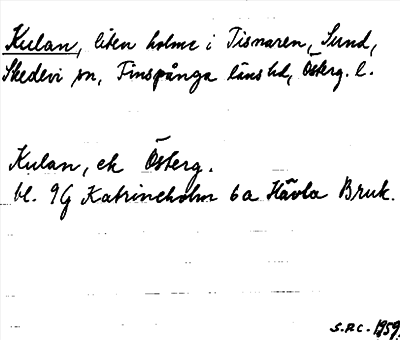 Kulan, liten holme i Tisnaren, Sund,
Skedevi sn, Finspånga länshd, Österg. l.
Kulan, ek Österg.
bl. 9G Katrineholm 6a Hävla Bruk.
S.P.C. 1959.